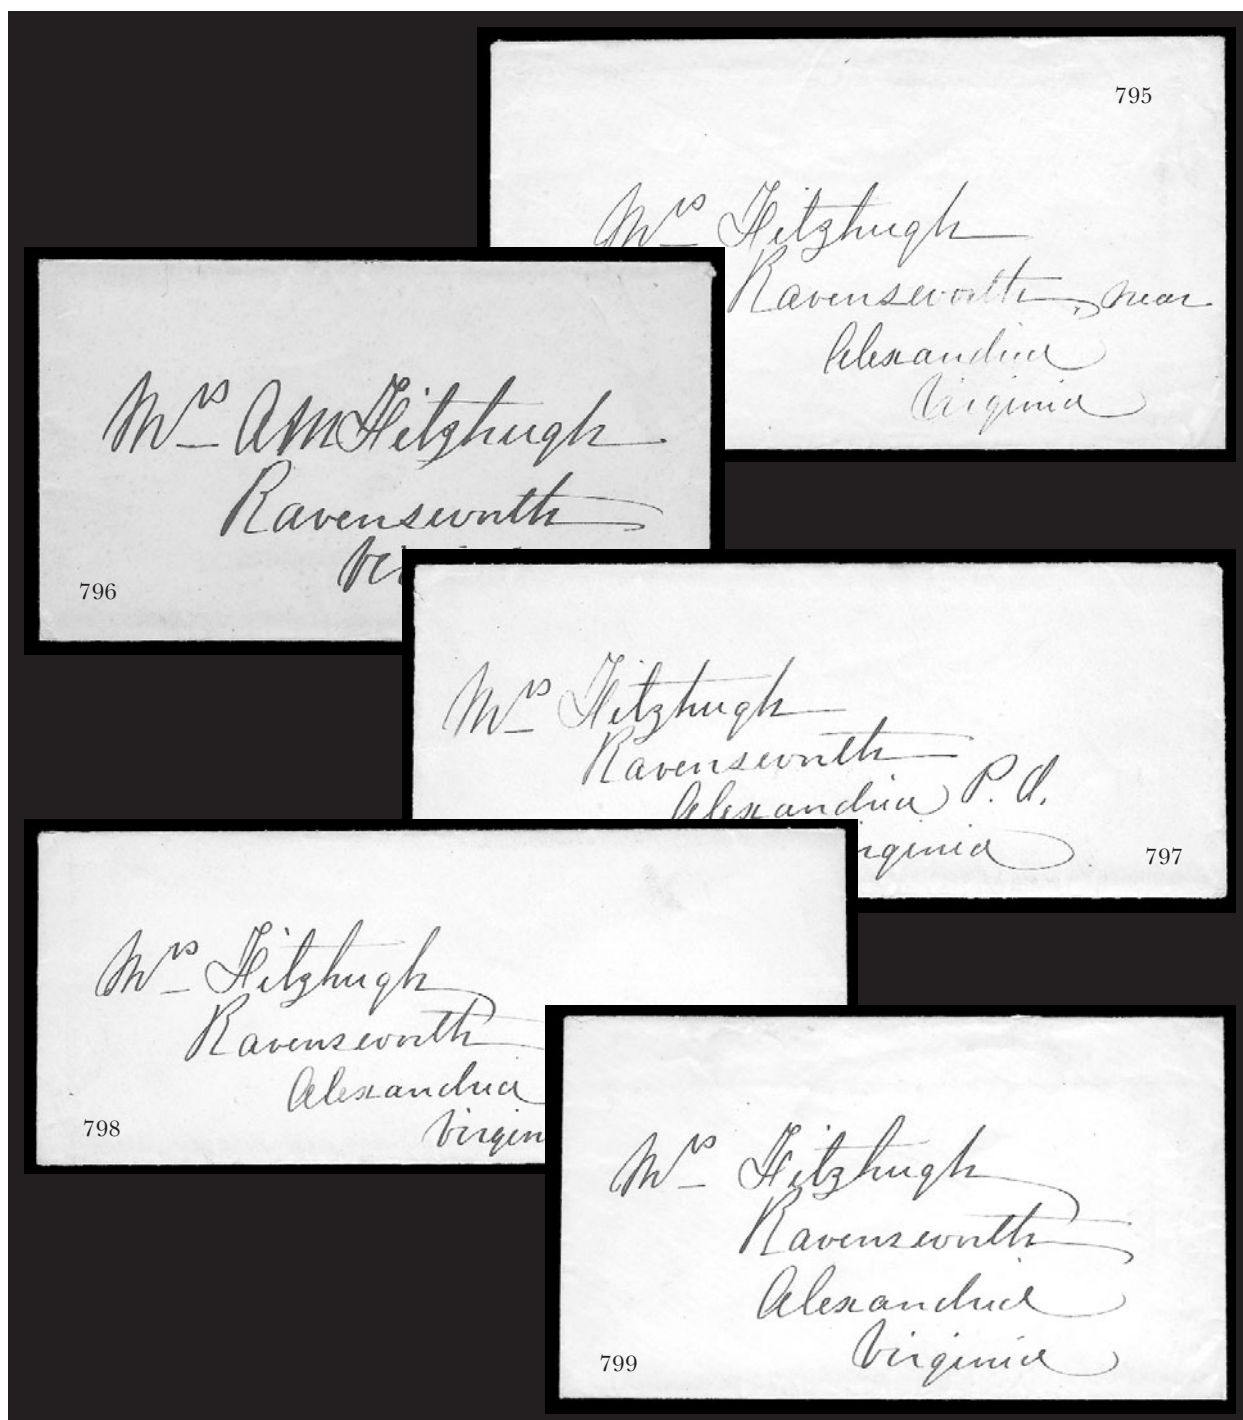 795
Mrs Fitzhugh
Ravensworth, near
Alexandria
Virginia
Mrs AM Fitzhugh
Ravensworth
796
Mrs Fitzhugh
Ravensworth
Alexandria P. O.
797
Mrs Fitzhugh
Ravensworth
Alexandria
Virgin
798
Mrs Fitzhugh
Ravensworth
Alexandria
Virginia
799